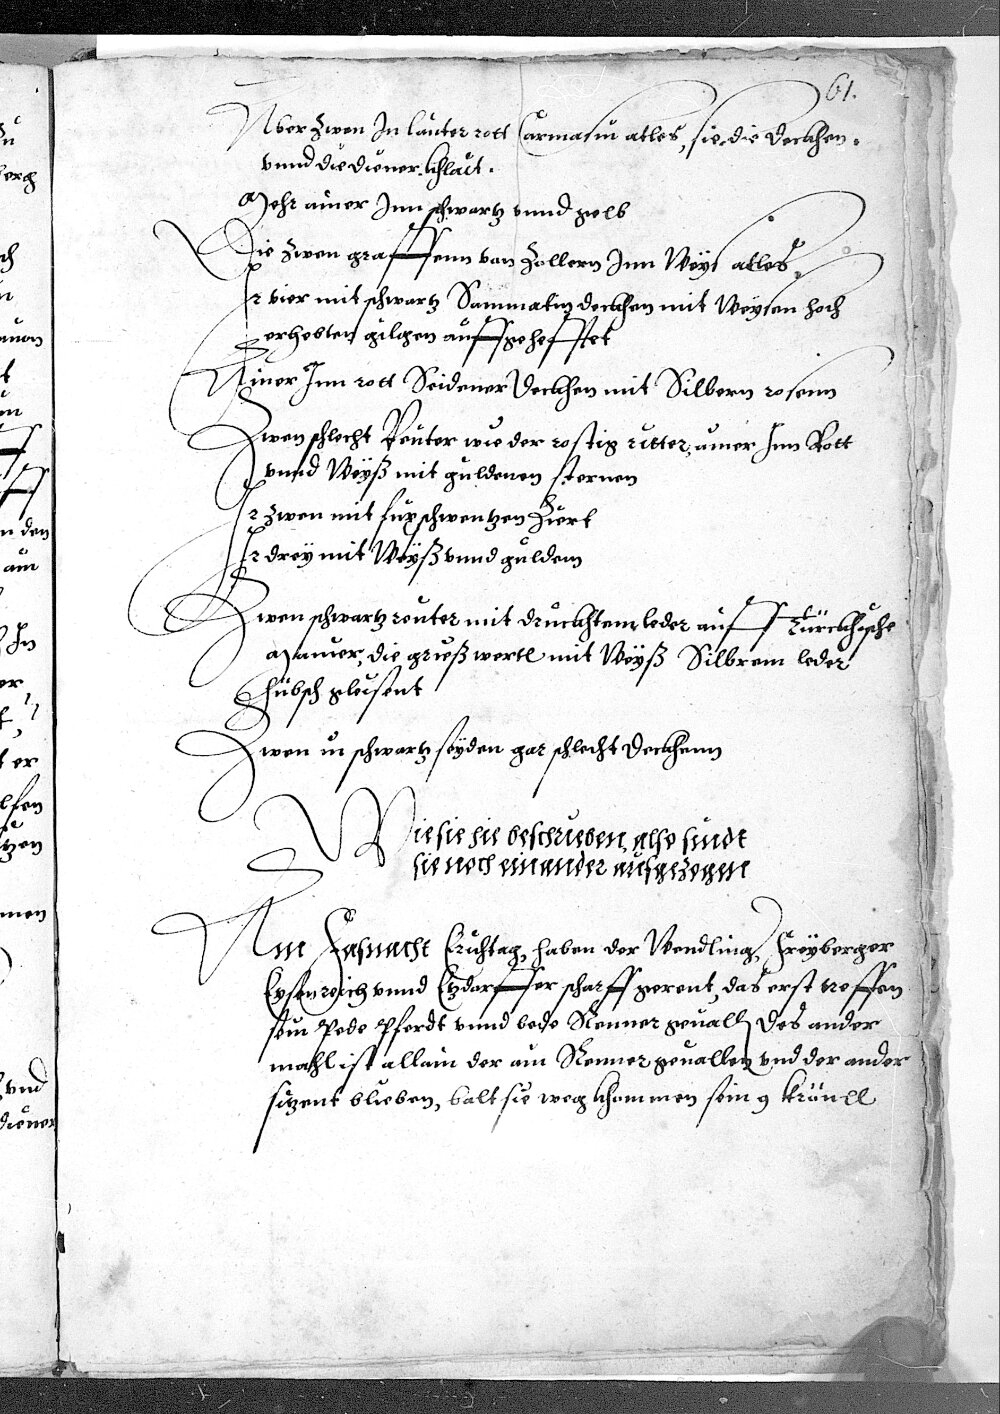 61.
Aber Zwen In lauter rott Carmasin atles, sie, die Deckhen.
vnnd die diener khlait.
Mehr ainer Inn schwartz vnnd gelb
Die Zwen graffenn von Zollern Inn Weys atles.
Ir vier mit schwartz Sammatin deckhen mit Weysen hoch
erhebten gilgen auffgehefftet
Ainer Inn rott Seidener Deckhen mit Silbern rosenn
Zwen schlecht Reuter wie der rostig ritter, ainer Inn Rott
vnnd Weyß mit guldenen sternen
Ir zwen mit fuxschwentzen Ziert
Ir drey mit Weyß vnnd guldem
Zwen schwartz reuter mit druckhtem leder auff Türckhische
Manier, die grieß wertl mit Weyß Silbrem leder
hübsch
Zwen in schwartz seyden gar schlecht Deckhenn
Wie sie hie beschrieben, also sindt
sie noch einander ausgezogen
Am Fasnacht Erichtag, haben der Wendling, Freyberger
Eysenreich vnnd Etzdorffer scharff gerent, das erst treffen
sein Pede Pferdt vnnd bede Renner geuall Des ander
mahl ist allain der ain Renner geuallen vnd der ander
sitzent blieben, balt sie weg khommen sein 9 Krönll